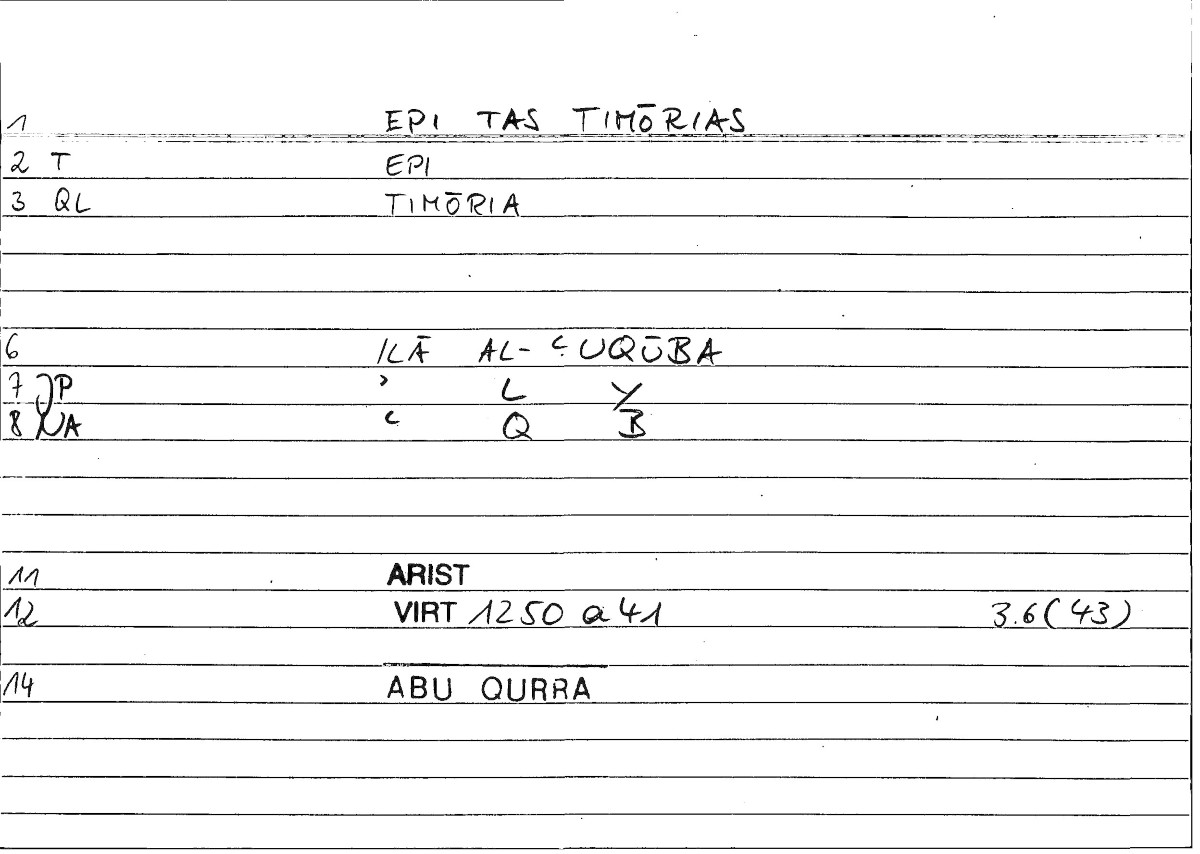 1 EPI TAS TIMŌRIAS
2 T EPI
3 QL TIMŌRIA
6 ILĀ AL-ʿUQŪBA
7 JP ʾ L Y
8 NA ʿ Q B
11 ARIST
12 VIRT 1250 a 41 3.6(43)
14 ABU QURRA